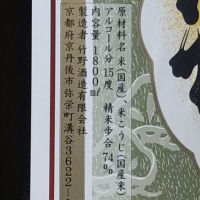 原材料名 米（国産）、米こうじ（国産米）
アルコール分 15度 精米歩合 74%
内容量 1800ml
製造者 竹野酒造有限会社
京都府京丹後市弥栄町溝谷3622-